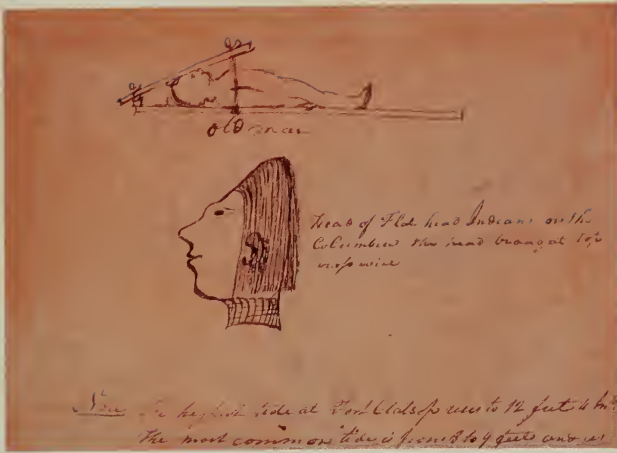 old man
Head of Flat head Indians on the
Columbia the head broad at top
cross wise
Note The highest tide at Fort Clatsop rises to 12 feet 4 In
The most common tide is from 8 to 9 feet and